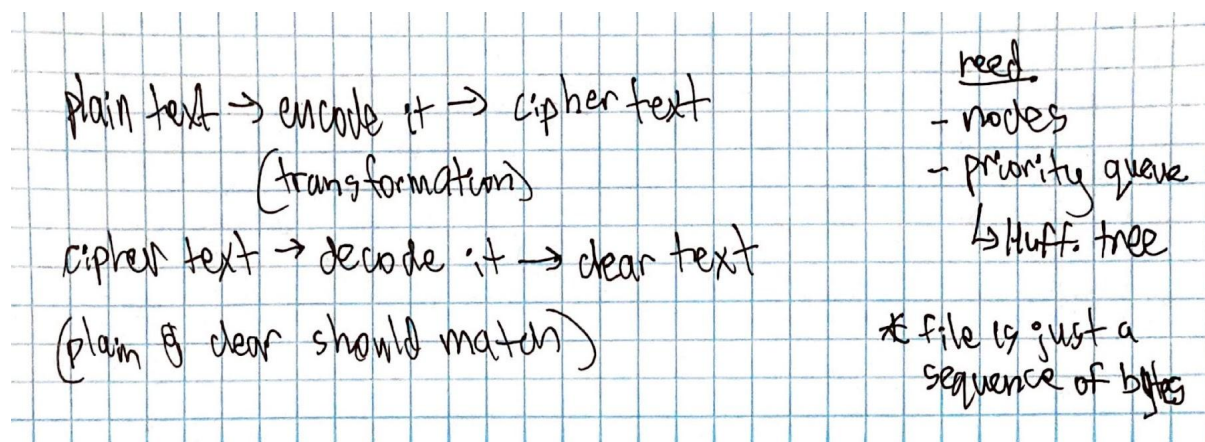 plain text → encode it → cipher text
(transformation)
cipher text → decode it → clear text
(plain & clear should match)
need.
- nodes
- priority queue
↳ Huff. tree
* file is just a
sequence of bytes